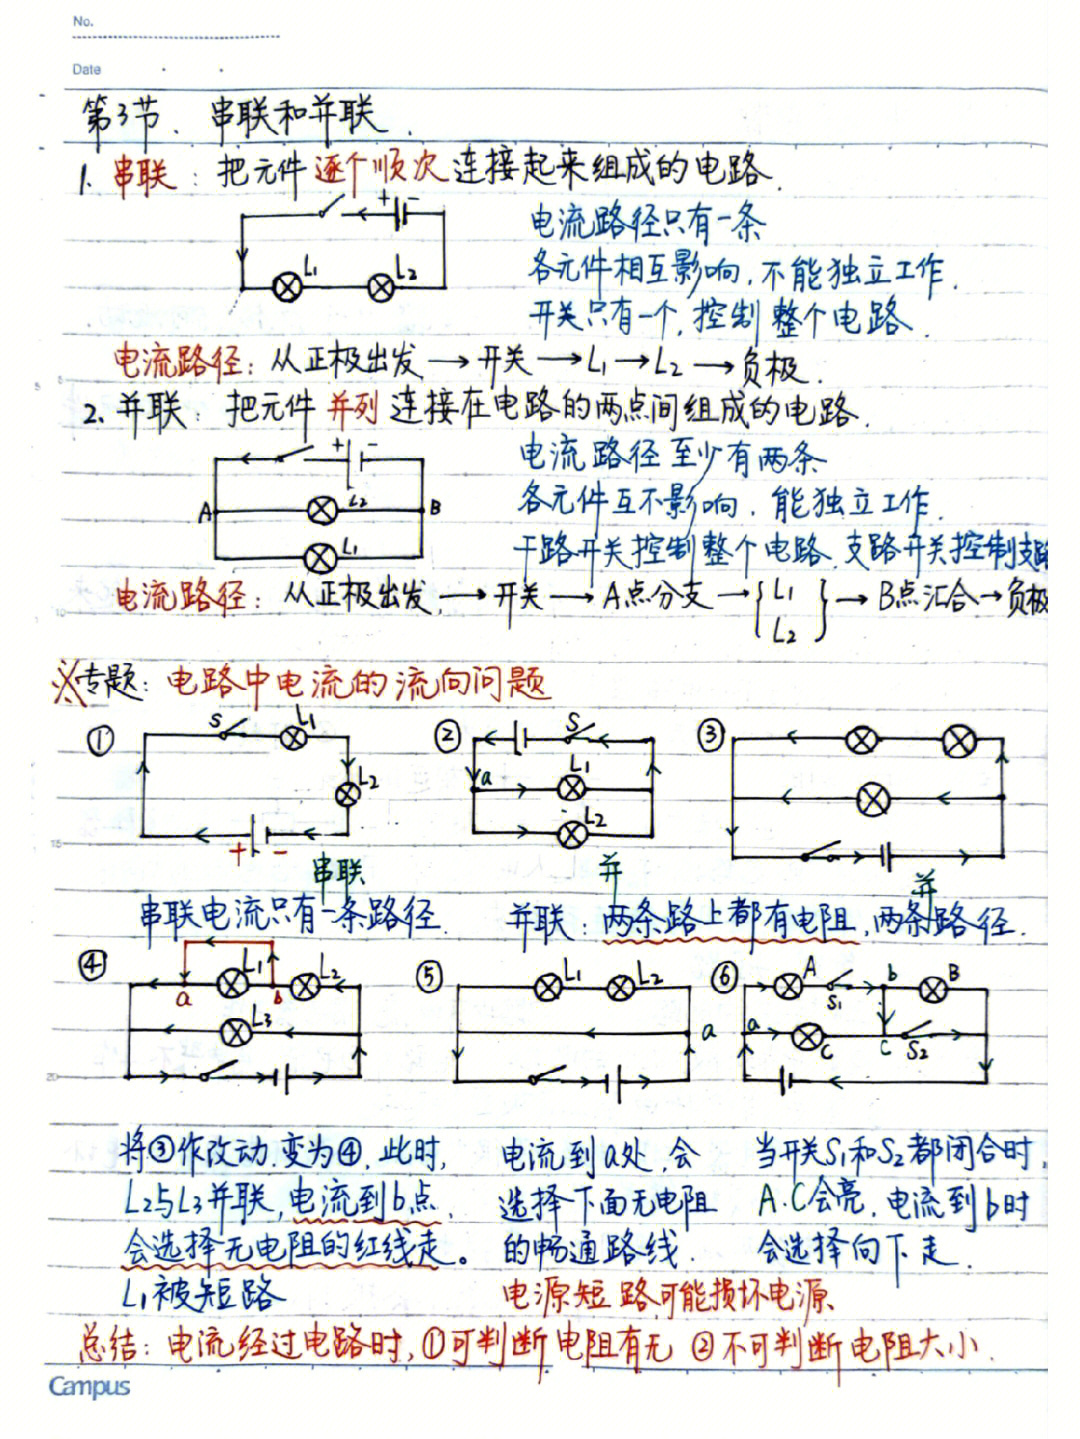 No.
Date
第3节、串联和并联.
1. 串联：把元件逐个顺次连接起来组成的电路.
+ -
L1 L2
电流路径只有一条
各元件相互影响,不能独立工作.
开关只有一个,控制整个电路.
电流路径：从正极出发→开关→L1→L2→负极.
2. 并联：把元件并列连接在电路的两点间组成的电路.
+ -
A L2 B
L1
电流路径至少有两条
各元件互不影响,能独立工作.
干路开关控制整个电路.支路开关控制支路
电流路径：从正极出发,→开关→A点分支→{L1 L2}→B点汇合→负极
5
10
※专题：电路中电流的流向问题
① S L1 L2 + -
串联
② S a L1 L2
并
③
并
15
串联电流只有一条路径.
并联：两条路上都有电阻,两条路径.
④ L1 L2 a b L3
⑤ L1 L2 a
⑥ A S1 b B a C c S2
20
将③作改动.变为④,此时,
L2与L3并联,电流到b点,
会选择无电阻的红线走。
L1被短路
电流到a处,会
选择下面无电阻
的畅通路线.
电源短路,可能损坏电源.
当开关S1和S2都闭合时
A.C会亮.电流到b时
会选择向下走.
总结：电流经过电路时,①可判断电阻有无 ②不可判断电阻大小.
Campus